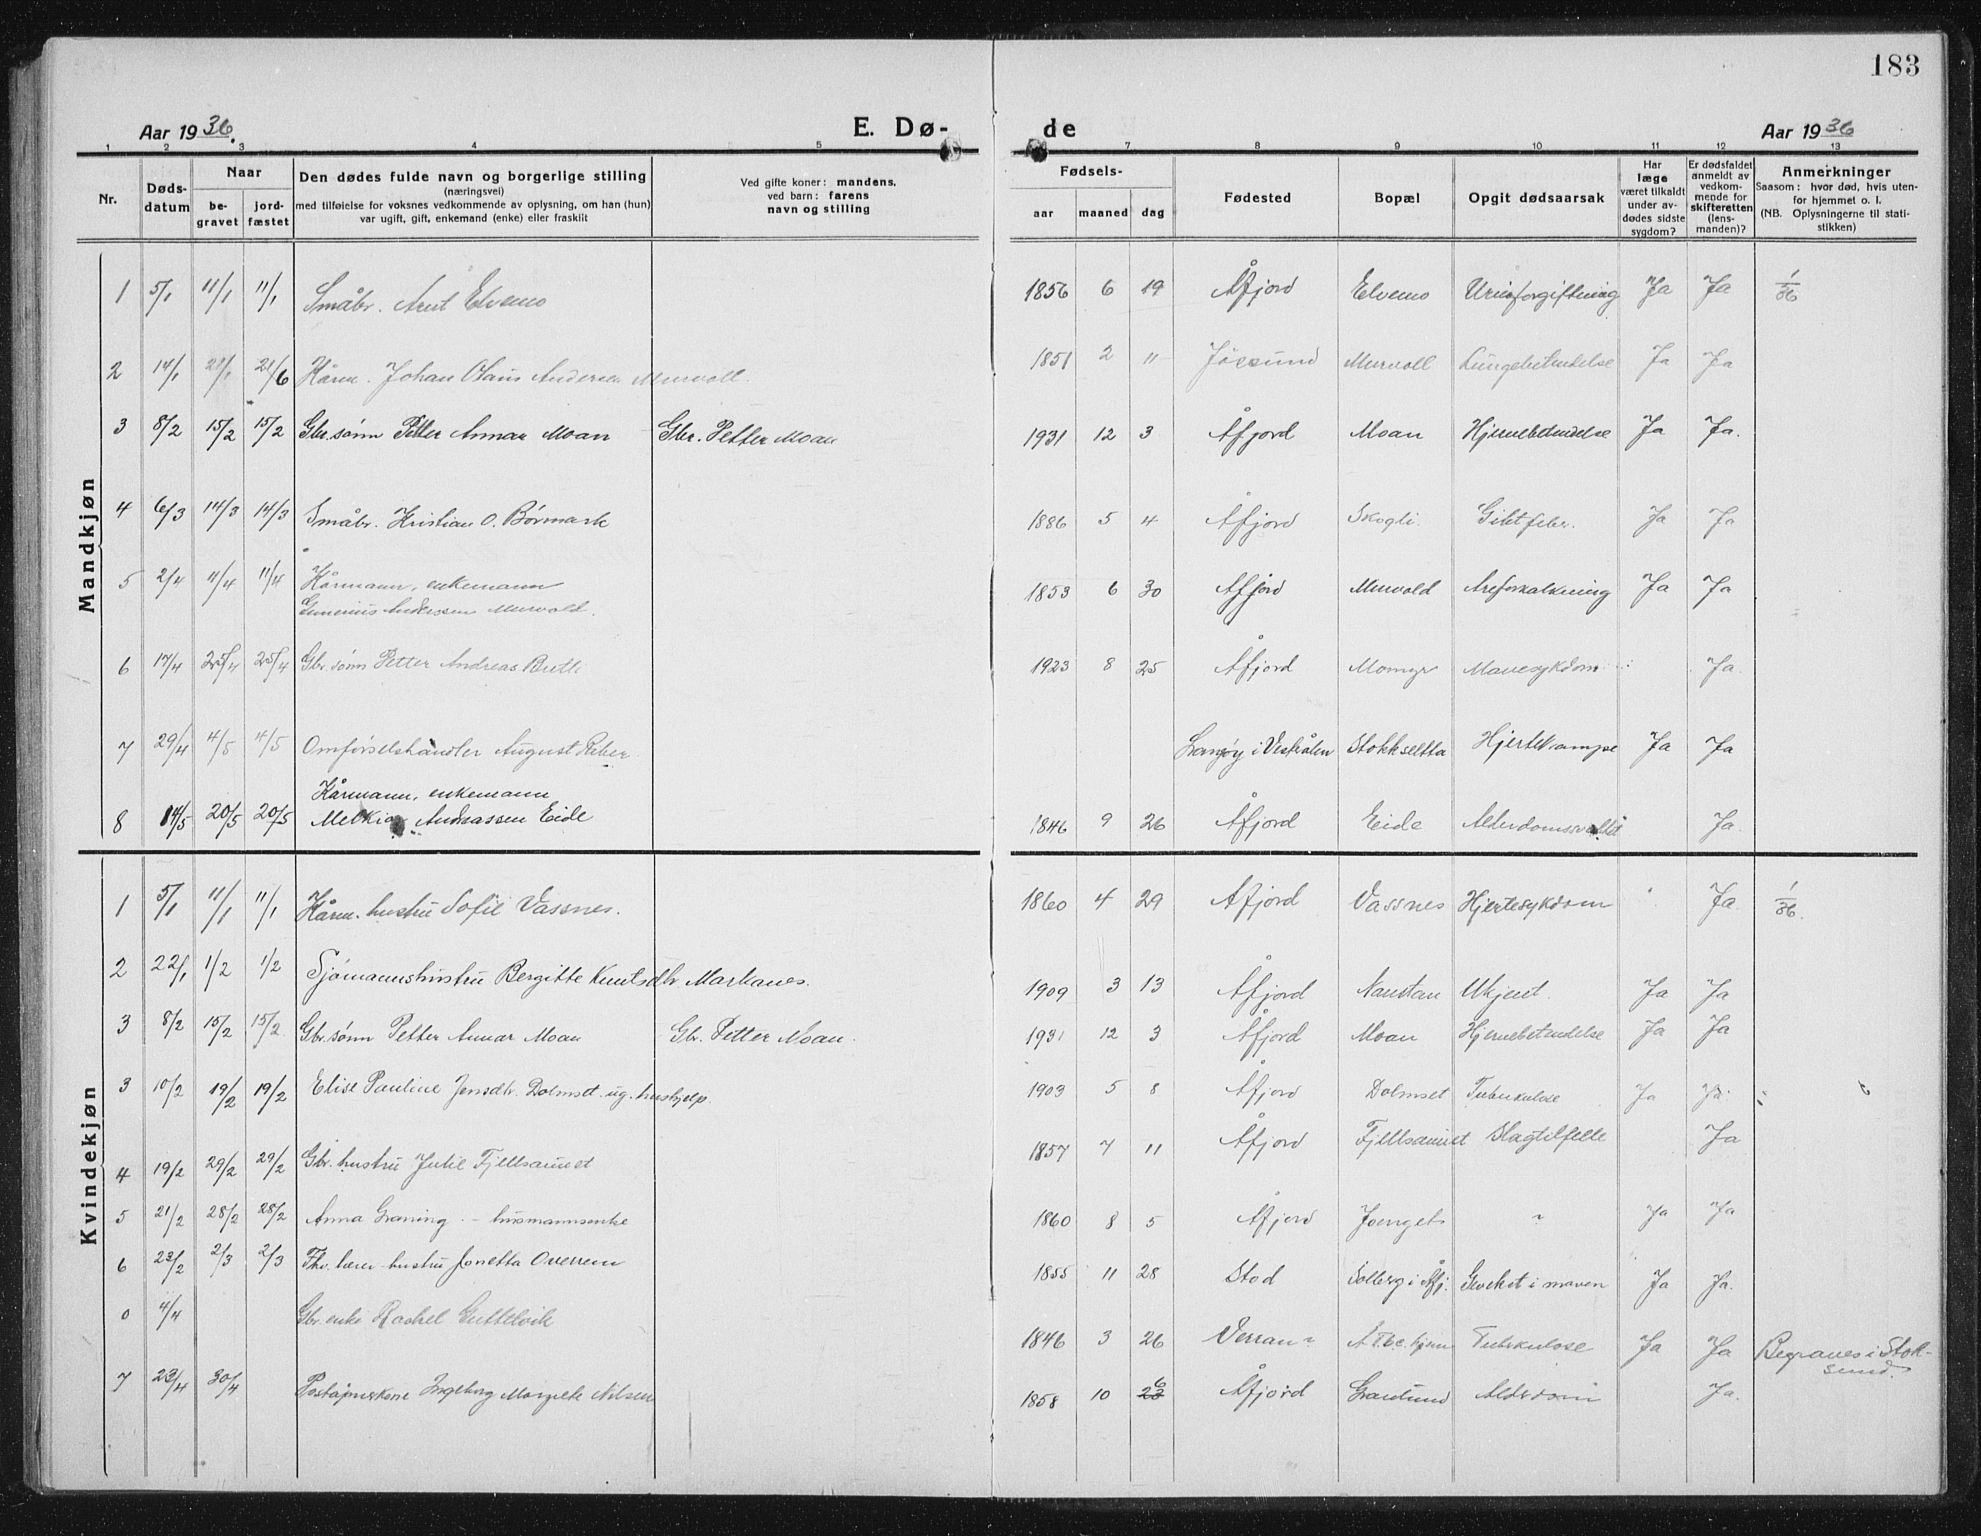 183
Aar 1936. E. Dø- de Aar 1936
1 2 3 4 5 6 7 8 9 10 11 12 13
Nr. Døds-datum Naar be-gravet jord-fæstet Den dødes fulde navn og borgerlige stilling (næringsvei) med tilføielse for voksnes vedkommende av oplysning, om han (hun) var ugift, gift, enkemand (enke) eller fraskilt Ved gifte koner: mandens, ved barn: farens navn og stilling Fødsels- aar maaned dag Fødested Bopæl Opgit dødsaarsak Har læge været tilkaldt under av-dødes sidste sygdom? Er dødsfaldet anmeldt av vedkom-mende for skifteretten (lens-manden)? Anmerkninger Saasom: hvor død, hvis uten-for hjemmet o. l. (NB. Oplysningerne til stati-stikken)
Mandkjøn
1 5/1 11/1 11/1 Småbr. Arnt Elvemo 1856 6 19 Åfjord Elvemo Urinforgiftning Ja Ja 1/36
2 14/1 21/1 21/6 Kårm. Johan Olaus Andersen Murvoll. 1851 2 11 Jøssund Murvoll Lungebetendelse Ja Ja
3 8/2 15/2 15/2 Gbr. sønn Petter Annar Moan Gbr. Petter Moan 1931 12 3 Åfjord Moan Hjernebetendelse Ja Ja.
4 6/3 14/3 14/3 Småbr. Kristian O. Børmark 1886 5 4 Åfjord Skogli. Giktfeber. Ja Ja
5 2/4 11/4 11/4 Kårmann, enkemann
Gunerius Anderssen Murvold. 1853 6 30 Åfjord Murvold Åreforkalkning Ja Ja
6 17/4 25/4 25/4 Gbr. sønn Petter Andreas 1923 8 25 Åfjord Momyr Mavesykdom Ja.
7 29/4 4/5 4/5 Omførselshandler August Langøy i Vestrålen Stokkseltta Hjertekrampe Ja Ja
Kårmann, enkemann
8 14/5 20/5 20/5 Melkior Andreassen Eide 1846 9 26 Åfjord Eide Alderdomssvakhet Ja.
Kvindekjøn
1 5/1 11/1 11/1 Kårm. hustru Sofie Vassnes. 1860 4 29 Åfjord Vassnes Hjertesykdom Ja 1/36.
2 22/1 1/2 1/2 Sjømannshustru Bergitte Knutsdtr. Markanes. 1909 3 13 Åfjord Naustan Ukjent. Ja Ja
3 8/2 15/2 15/2. Gbr. sønn Petter Annar Moan Gbr. Petter Moan. 1931 12 3 Åfjord Moan Hjernebetendelse Ja Ja
3 10/2 19/2 19/2 Elise Pauline Jensdtr. Dolmset ug. hushjelp. 1903 5 8 Åfjord Dolmset Tuberkulose Ja Ja.
4 19/2 29/2 29/2 Gbr. hustru Julie Fjellsaunet 1857 7 11 Åfjord Fjellsaunet Slagtilfelle Ja
5 21/2 28/2 28/2 Anna Graning. - husmannsenke 1860 8 5 Åfjord ? Ja Ja
6 23/2 2/3 2/3 Fhv. lærer hustru Jonetta Overrein 1855 11 28 Stod Solberg i Åfj. Ja Ja.
0 4/4 Gbr. enke Rachel 1846 3 26 Verran? Tuberkulose Ja Ja Begraves i Stok-
sund.
7 23/4 30/4 Ingeborg Margrete Nilsen 1858 10 26 Åfjord Alderdom Ja.